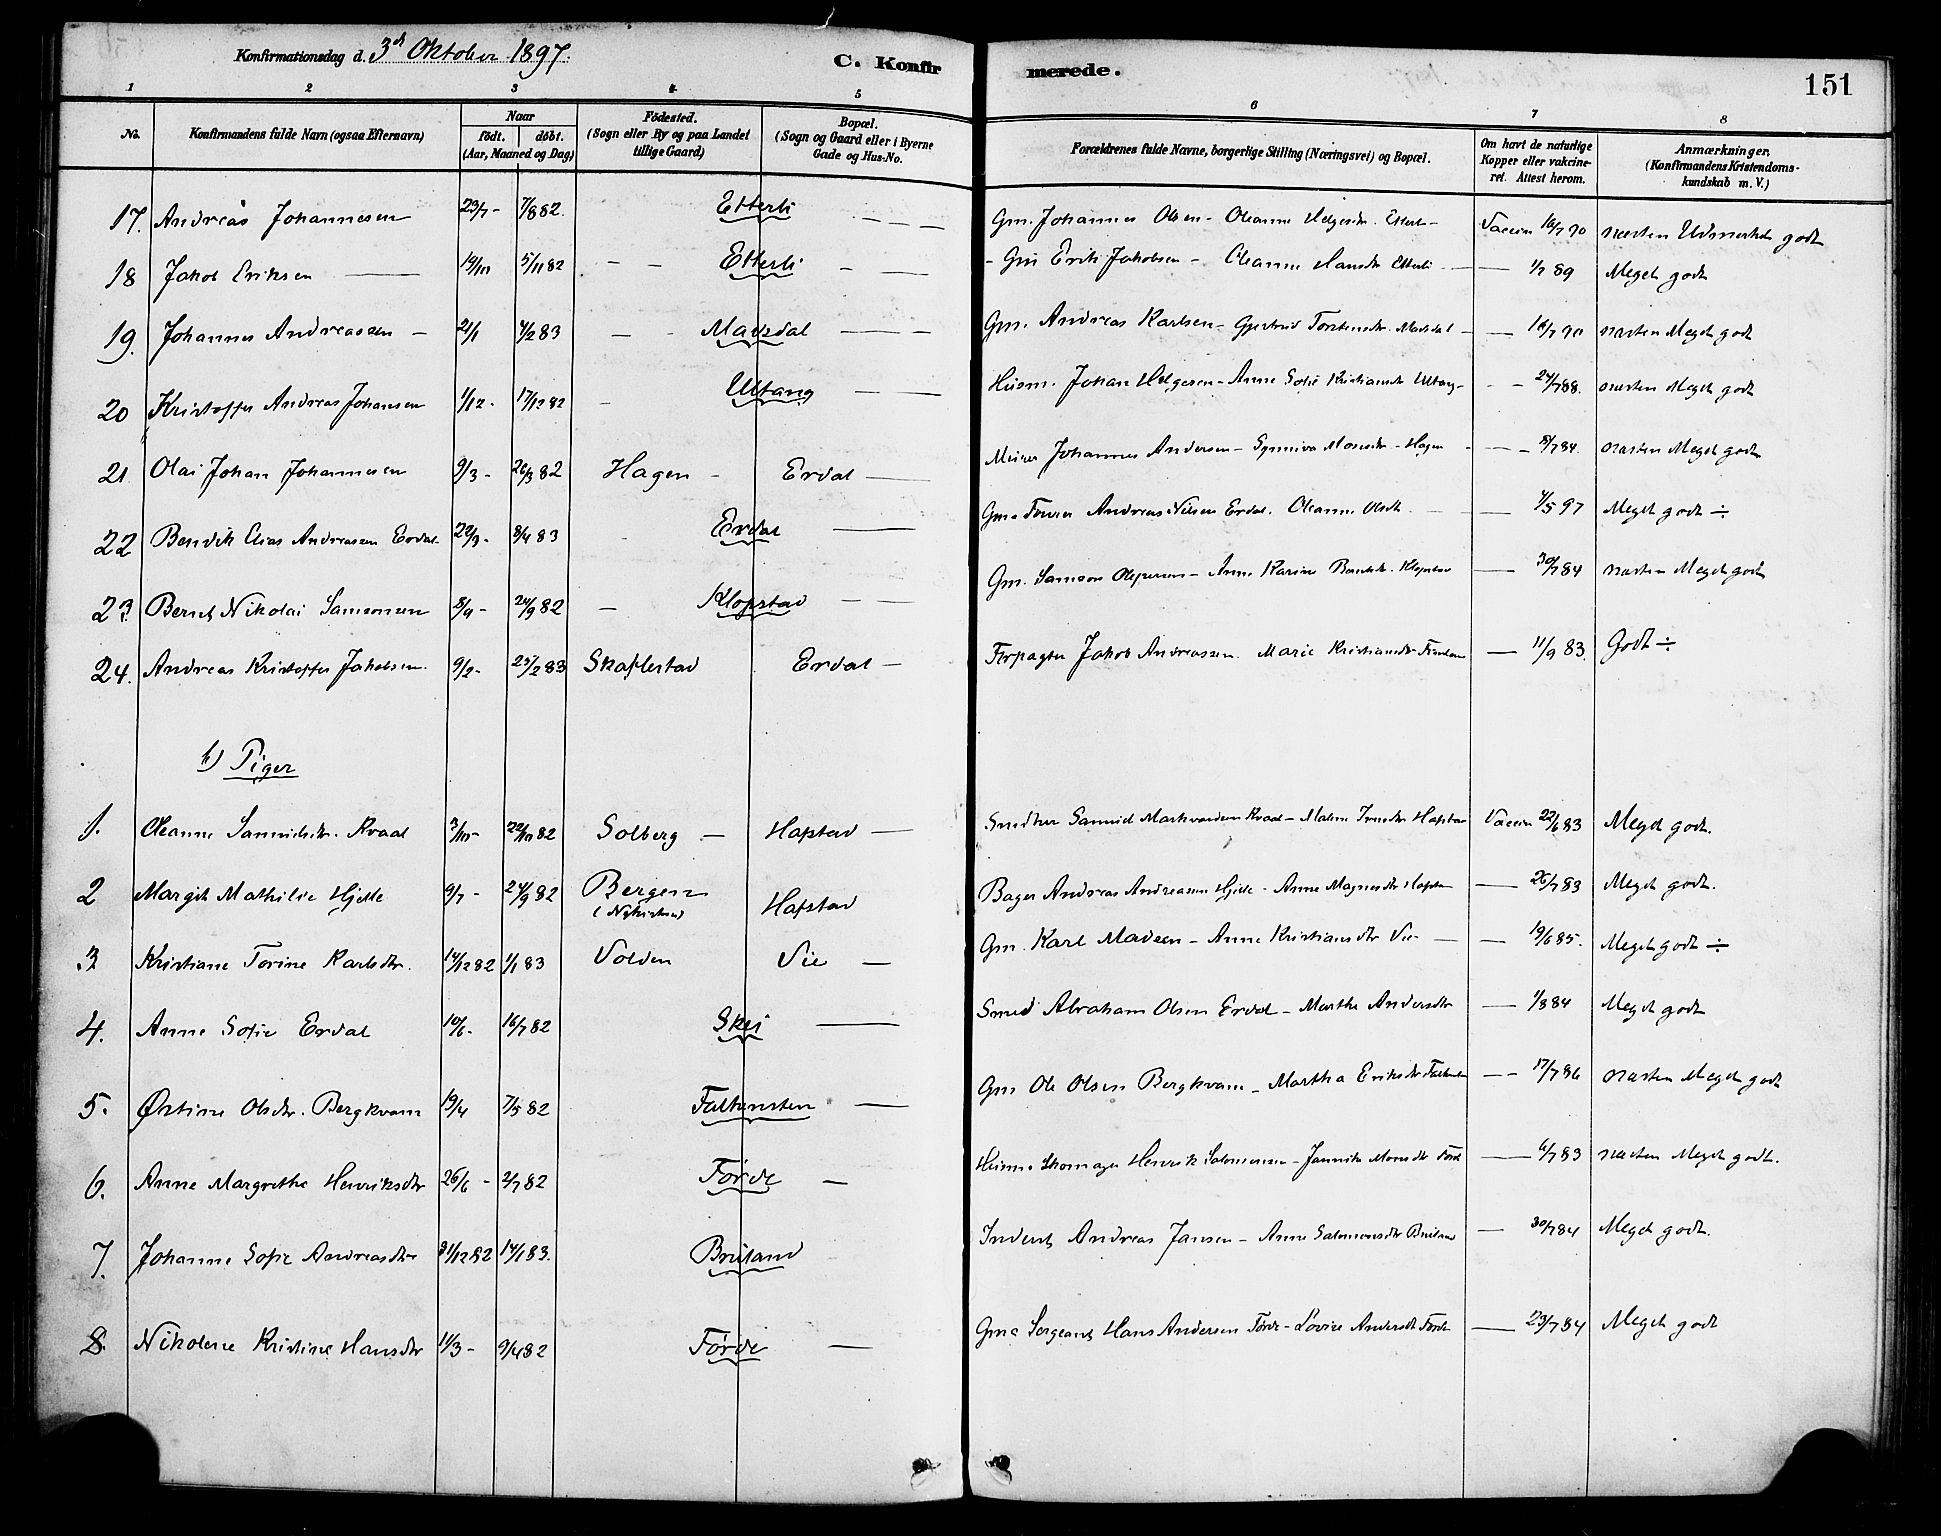 Konfirmationsdag d. 3d Oktober 1897. C. Konfirmerede. 151
1 2 3 4 5 6 7 8
No. Konfirmandens fulde Navn (ogsaa Efternavn) Naar födt. döbt. (Aar, Maaned og Dag) Födested. (Sogn eller By og paa Landet tillige Gaard) Bopæl. (Sogn og Gaard eller i Byerne Gade og Hus-No. Forældrenes fulde Navne, borgerlige Stilling (Næringsvei) og Bopæl. Om havt de naturlige Kopper eller vakcineret. Attest herom. Anmærkninger. (Konfirmandens Kristendomskundskab m. V.)
17. Andreas Johannesen 23/7 - 7/8 82. Etterli — — Gm. Johannes Olsen - Oleanne Helgesdtr. Etterli - Vaccin 16/7 90 næsten Udmærket godt
18 Jakob Eriksen — 19/10 5/11 82 - - Etterli - — - Gm Erik Jakobsen - Oleanne Hansdtr Etterli — 1/7 89 Meget godt
19. Johannes Andreassen - 21/1 4/2 83 - - Madsdal — - Gm. Andreas Karlsen - Gjertrud Torstensdtr. Madsdal - — 16/7 90 næsten Meget godt
20 Kristoffer Andreas Johansen 1/12 - 17/12 82 - Ultang — — Husm. Johan Helgesen - Anne Sofie Kristiansdtr Ultang - - - 24/7 88. næsten Meget godt
21 Olai Johan Johannesen 9/3 - 26/3 82 Hagen - Erdal — Murer Johannes Andersen - Synniva Mosesdtr - Hagen - — 8/7 84. næsten Meget godt
22 Bendik Elias Andreassen Erdal. 22/3 - 8/4 83 - Erdal — Andreas Nilsen Erdal. Oleanne Olsdtr. — 4/5 97 Meget godt ÷
23. Bernt Nikolai Samsonsen 8/9 - 24/9 82 - Klopstad — — Gm. Samson Olsen - Anne Karine Klopstad — 30/7 84 næsten Meget godt
24. Andreas Kristoffer Jakobsen. 9/2 - 25/2 83 Skaflestad Erdal - Forpagter Jakob Andreassen. Marie Kristiansdtr — 11/9 83. Godt ÷
b) Piger
1. Oleanne Samuelsdtr. Kvaal 3/10 - 22/10 82 Solberg - Hafstad — Samuel Kvaal - Hafstad Vaccin 22/6 83 Meget godt.
2 Margit Mathilie Hjelle 9/7 - 24/9 82 Bergen (Nykirken) Hafstad Bager Andreas Andreassen Hjelle - Anne Magnesdtr Hafstad — 26/7 83 Meget godt.
3 Kristiane Torine Karlsdtr. 14/12 82 1/1 83 Volden Vie — Gm. Karl Madsen - Anne Kristiansdtr Vie - — 19/6 85. Meget godt ÷
4. Anne Sofie Erdal 10/6 - 16/7 82 Skei — Smed Abraham Olsen Erdal - Marthe Andersdtr — 1/8 84 Meget godt
5. Østine Olsdtr. Bergkvam 19/4 7/5 82 Falkensten — Gm Ole Olsen Bergkvam - Martha Eriksdtr Falkensten - - 17/7 86 næsten Meget godt
6. Anne Margrethe Henriksdtr 26/6 - 2/7 82 Førde — Skomager Henrik Salomonsen - Jannika Monsdtr Førde — 6/7 83 næsten Meget godt.
7. Johanne Sofie Andreasdtr 31/12 82 14/1 83. Bruland - Inderst Andreas Jansen - Anne Salomonsdtr Bruland — 30/7 84 Meget godt.
8. Nikoline Kristine Hansdtr 11/3 - 9/4 82 Førde — Sergeant Hans Andersen Førde - Lovise Andersdtr Førde — 23/7 84 Meget godt